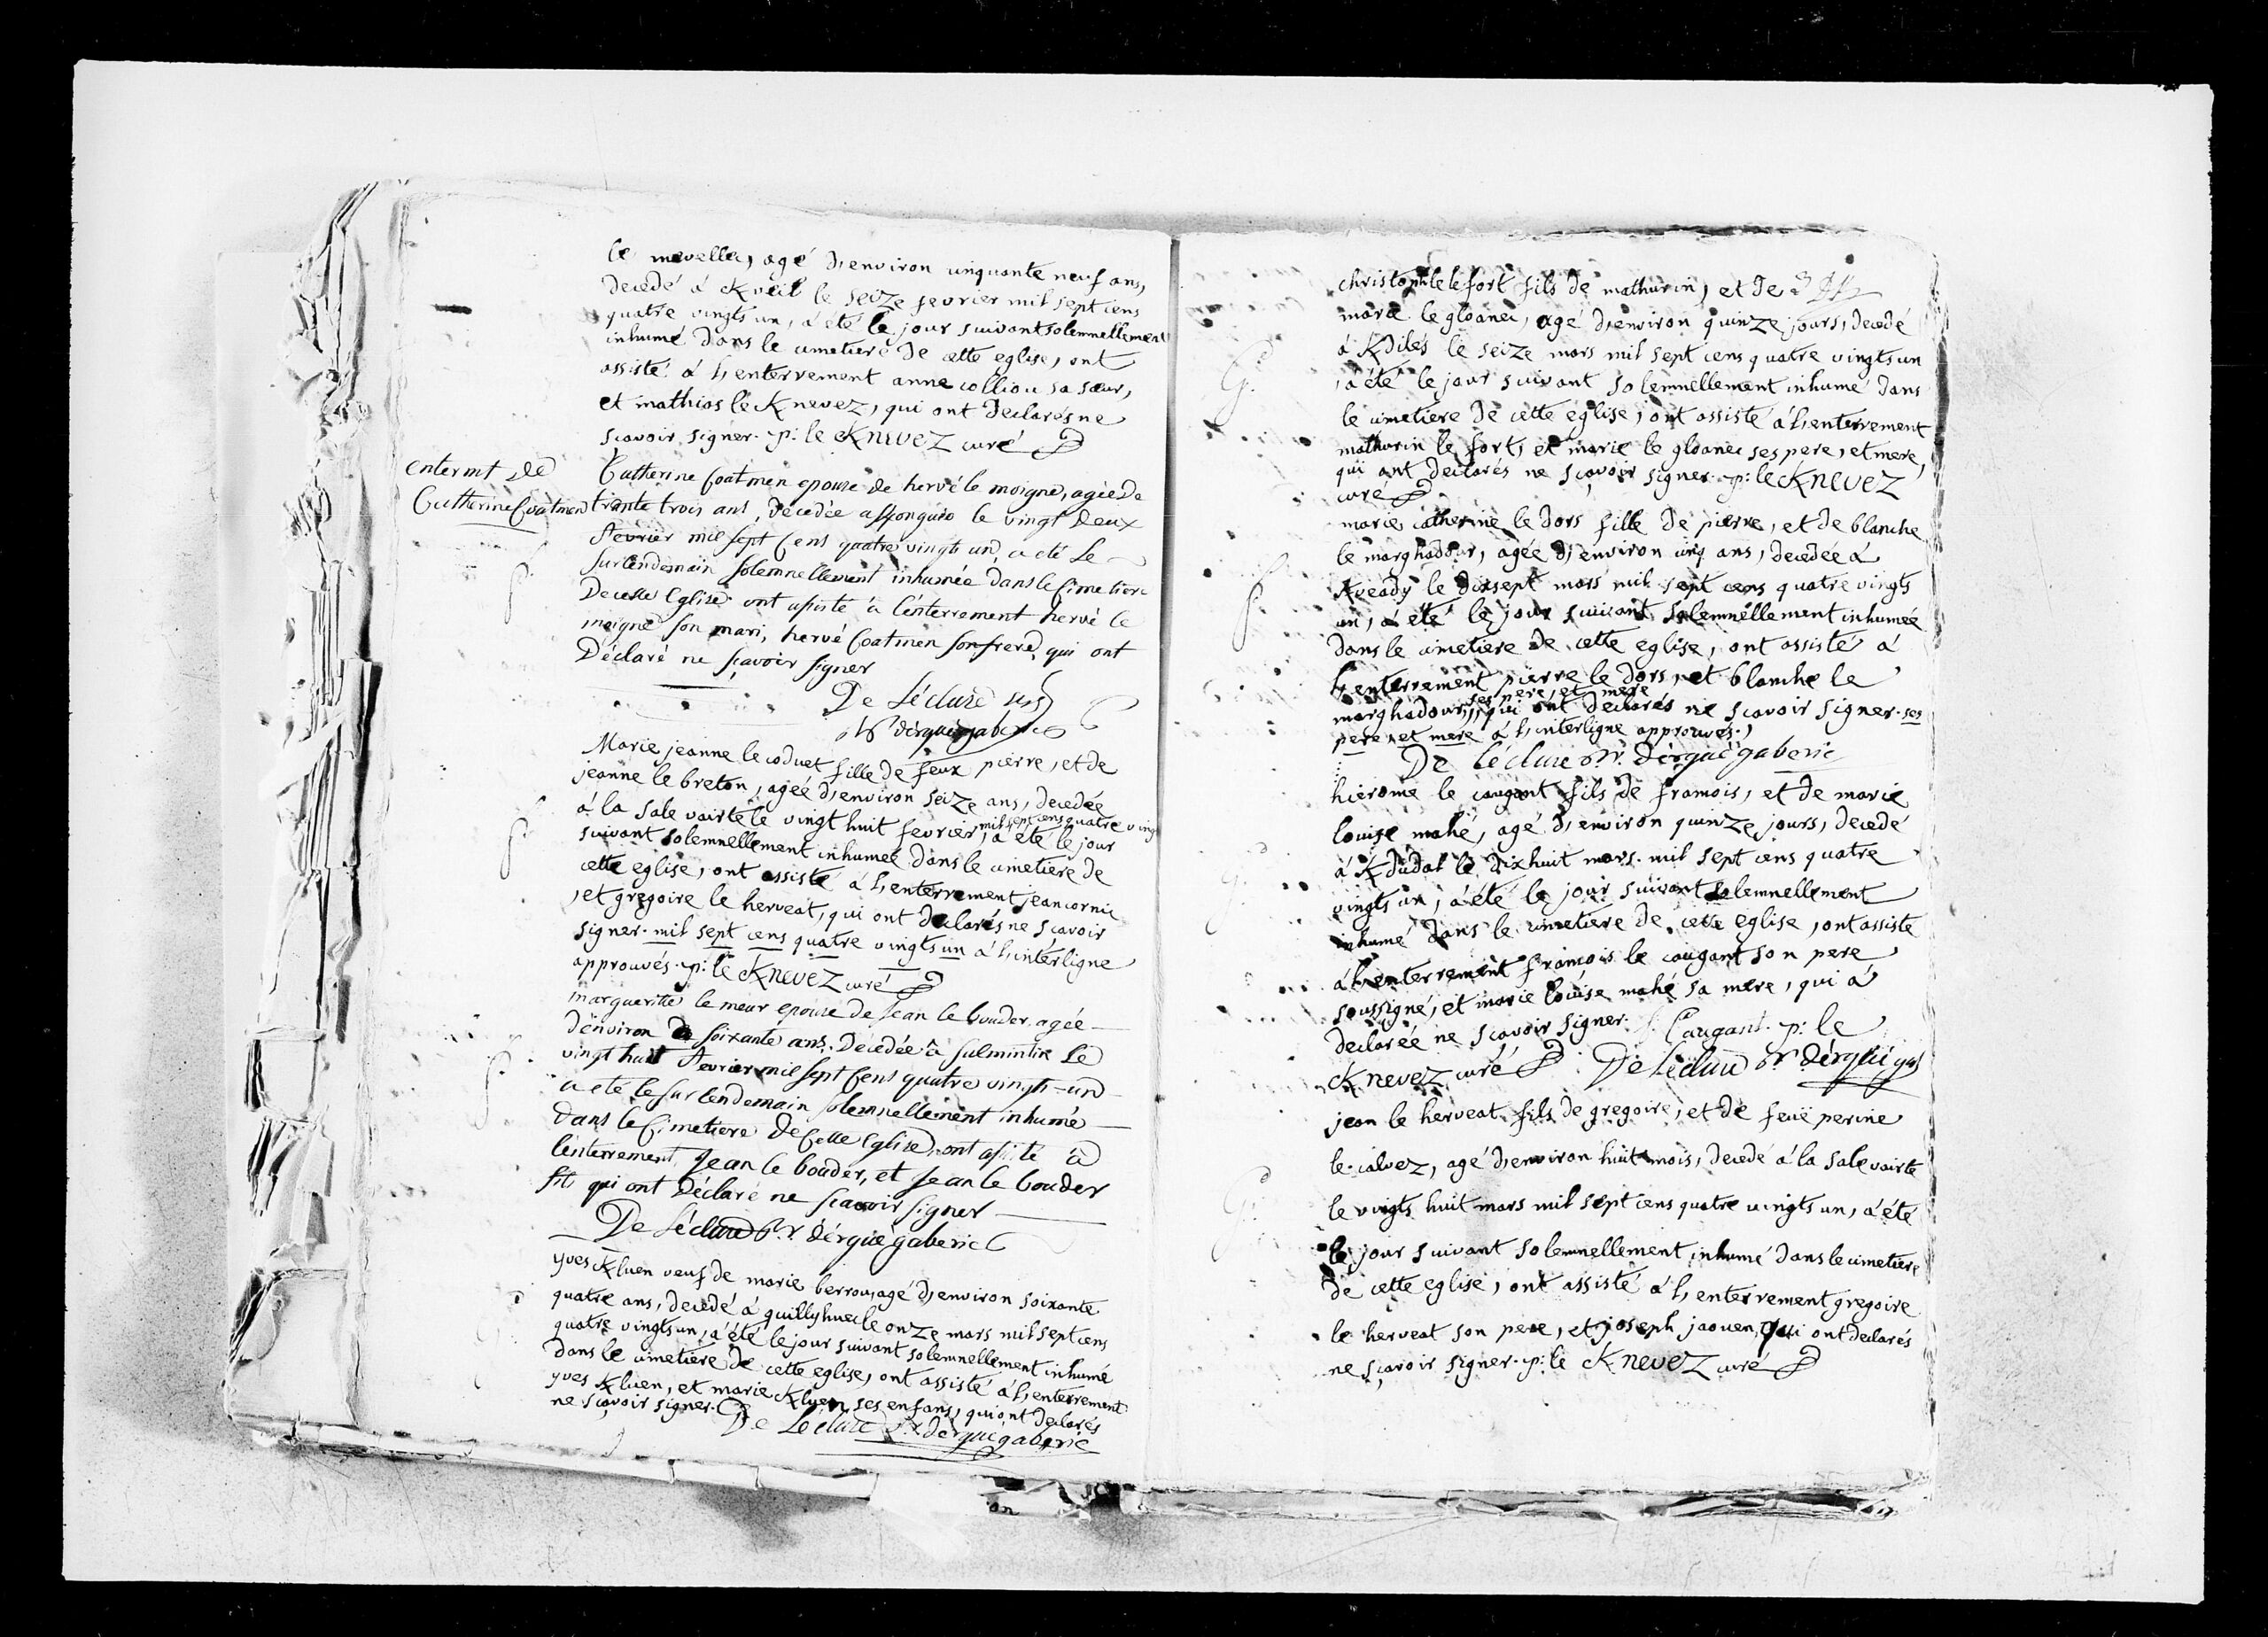 le mevellec, agé d'environ cinquante neuf ans,
decedé á Kveil le seize fevrier mil sept cens
quatre vingts un, á été le jour suivant solemnellement
inhumé dans le cimetiere de cette eglise, ont
assisté á l'enterrement anne colliou sa sœur,
et mathias le Knevez, qui ont declarés ne
sçavoir signer. p: le Knevez curé
entermt de
Catherine Coatmen
Catherine Coatmen epouse de hervé le moigne, agée de
trante trois ans, decedée a le vingt deux
fevrier mil sept cens quatre vingts un, a eté le
surlendemain solemnellement inhumée dans le cimetiere
de cette eglise ont assisté à l'enterrement hervé le
moigne son mari, hervé Coatmen son frere, qui ont
déclaré ne sçavoir signer
De Léclure
pr dérgué gaberic
Marie jeanne le coduet fille de feux pierre, et de
jeanne le breton, agée d'environ seize ans, decedée
á la sale vairte le vingt huit fevrier mil sept cens quatre vingts, á été le jour
suivant solemnellement inhumée dans le cimetiere de
cette eglise, ont assisté á l'enterrement jean cornic
, et gregoire le herveat, qui ont declarés ne sçavoir
signer. mil sept cens quatre vingts un á l'interligne
approuvés. p: le Knevez curé
margueritte le meur epouse de jean le bouder, agée
d'environ de soixante ans. decedée à le
vingt huit fevrier mil sept cens quatre vingts un
a eté le surlendemain solemnellement inhumé
dans le cimetiere de cette eglise, ont assisté à
l'enterrement jean le bouder, et jean le bouder
fils qui ont déclaré ne sçavoir signer
De Léclure pr. dérgué gaberic
yves Kluen veuf de marie berrou, agé d'environ soixante
quatre ans, decedé á quillyhuec le onze mars mil sept cens
quatre vingts un, á été le jour suivant solemnellement inhumé
dans le cimetiere de cette eglise, ont assisté á l'enterrement
yves Kluen, et marie Kluen ses enfans, qui ont declarés
ne sçavoir signer.
De Léclure pr. dérgué gaberic
an
christophle le fort fils de mathurin, et de
marie le gloanec, agé d'environ quinze jours, decedé
á Kdilés le seize mars mil sept cens quatre vingts un
, á été le jour suivant solemnellement inhumé dans
le cimetiere de cette eglise, ont assisté á l'enterrement
mathurin le fort, et marie le gloanec ses pere, et mere,
qui ont declarés ne sçavoir signer. p: le Knevez
curé
marie catherine le dors fille de pierre, et de blanche
le marghadour, agée d'environ cinq ans, decedée á
Kveady le dixsept mars mil sept cens quatre vingts
un, á été le jour suivant solemnellement inhumée
dans le cimetiere de cette eglise, ont assisté á
l'enterrement pierre le dors, et blanche le
marghadour, ses pere, et mere, qui ont declarés ne sçavoir signer. ses
pere, et mere á l'interligne approuvés.
De Léclure pr. dérgué gaberic
hierome le caugant fils de francois, et de marie
louise mahé, agé d'environ quinze jours, decedé
á Kdudal le dixhuit mars mil sept cens quatre
vingts un, á été le jour suivant solemnellement
inhumé dans le cimetiere de cette eglise, ont assisté
á l'enterrement francois le caugant son pere
soussigné, et marie louise mahé sa mere, qui á
declarée ne sçavoir signer. f. Caugant. p: le
Knevez curé De Léclure pr dérgué gab
jean le herveat fils de gregoire, et de feüe perine
le calvez, agé d'environ huit mois, decedé á la sale vairte
le vingts huit mars mil sept cens quatre vingts un, á été
le jour suivant solemnellement inhumé dans le cimetiere
de cette eglise, ont assisté á l'enterrement gregoire
le herveat son pere, et joseph jaouen, qui ont declarés
ne sçavoir signer. p: le Knevez curé